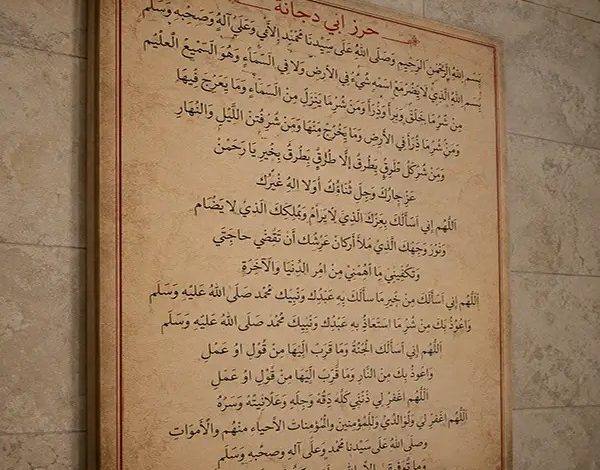 حرز ابي دجانة
بِسْمِ اللهِ الرَّحْمنِ الرَّحِيمِ وَصَلَى اللهُ عَلَى سَيِّدِنَا مُحَمَّدٍ الأُمِي وَعَلَى آلِهِ وَصَحْبِهِ وَسَلَّمِ
بِسْمِ اللهِ الَّذِي لاَ يَضُرُ مَعَ اسْمِهِ شَيْءٌ فِي الأَرْضِ وَلاَ فِي السَّمَاءِ وَهُوَ السَّمِيعُ العَلِيْمُ
مِنْ شَرِ مَا خَلَقَ وَبَرأَ وَذَرَأَ وَمِنْ شَرِ مَا يَنْزِلَ مِنَ السَمَاءِ وَمَا يَعْرُجَ فِيهَا
وَمِنْ شَرِ مَا ذَرَأَ فِي الأَرْضِ وَمَا يَخْرُجَ مِنْهَا وَمِنْ شَرِ فِتَنِ اللَّيْلِ وَالنَّهَارِ
وَمِنْ شَرِ كُلِ طَارِقٍ يَطْرُقُ إِلَّا طَارِقٌ يَطْرُقُ بِخَيْرٍ يَا رَحْمَنْ
عَزَ جَارُكَ وَجَلَ ثَنَاؤُكَ أَوَلَا الهُ غَيْرُكَ
اَللَّهُمَ إِنِي أَسْأَلُكَ بِعِزِكَ الَّذِي لَا يَرَامْ وَبِمُلْكِكَ الَّذِي لَا يَضَام
وَنُوْرِ وَجْهِكَ الَّذِي مَلَأَ أَرْكَانَ عَرْشِكَ أَنْ تَقْضِي حَاجَتِي
وَتَكْفِينِي مَا أَهَمَنِي مِنْ امْرِ الدُنْيَا وَالآخِرَةِ
اَللَّهُمِ إِنِي أَسْأَلُكَ مِنْ خَيْرِ مَا سَأَلَكَ بِهِ عَبْدُكَ وَنَبِيكَ مُحَمْدْ صَلَى اللهُ عَلَيْهِ وَسَلَم
وَاعُوْذُ بَكَ مِنْ شَرِ مَا اسْتَعَاذَ بِهِ عَبْدُكَ وَنَبِيكَ مُحَمْدْ صَلَى اللهُ عَلَيْهِ وَسَلَّم
اَللَّهُمَ إِنِي أَسْأَلُكَ الجَنَّةَ وَمَا قَرَبَ الَيْهَا مِنْ قُوْلِ اوْ عَمَلِ
وَاعُوذُ بِكَ مِنَ النَارِ وَمَا قَرَبَ الَيْهَا مِنْ قُوْلِ اوْ عَمَلِ
اَللَّهُمَ اغْفِرْ لِي ذَنْبِي كُلَهُ دِقَهُ وَجِلَهِ وَعَلَانِيَتَهُ وَسِرَهُ
اَللَّهُمَ اغْفِرْ لِي وَلِوَالِدَيَّ وَلِلْمُؤمِنِينَ وَالمُؤْمِنَاتْ الأَحْيَاءِ مِنْهُم وَالأَمْوَاتِ
وَصَلَى اللهُ عَلَى سَيِّدِنَا مُحَمْد وَعَلَى آلَهِ وصَحْبِهِ وَسَلِمِ